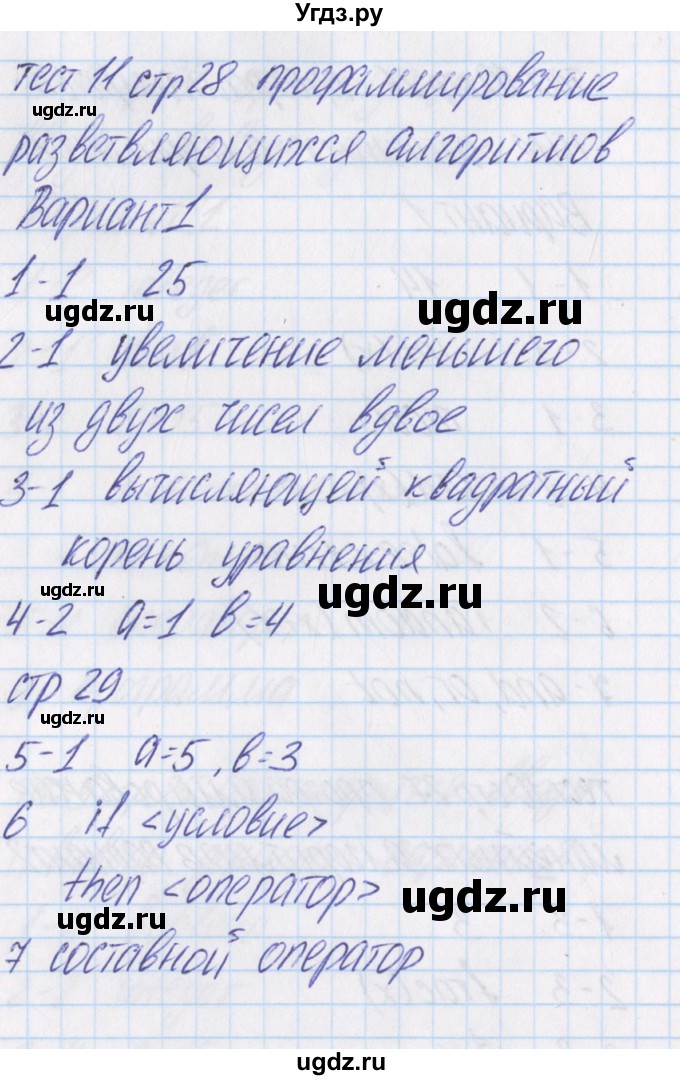 Угдз.ру
тест 11 стр 28 программирование
разветвляющихся алгоритмов
Вариант 1
1-1 25
2-1 увеличение меньшего
из двух чисел вдвое
3-1 вычисляющей квадратный
корень уравнения
4-2 a=1 в=4
стр 29
5-1 a=5, в=3
6 if <условие>
then <оператор>
7 составной оператор
ugdz.ru
ugdz.ru
ugdz.ru
ugdz.ru
ugdz.ru
ugdz.ru
ugdz.ru
ugdz.ru
ugdz.ru
ugdz.ru
ugdz.ru